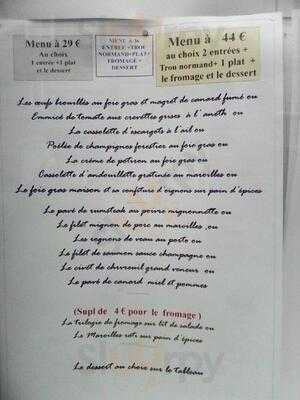 Menu à 29 €
Au choix
1 entrée +1 plat
et le dessert
MENU à 36
ENTRÉE +TROU
NORMAND+PLAT+
FROMAGE +
DESSERT
Menu à 44 €
au choix 2 entrées +
Trou normand+ 1 plat +
le fromage et le dessert
Les œufs brouillés au foie gras et magret de canard fumé ou
de tomate aux crevettes grises à l'aneth ou
La cassolette d'escargots à l'ail ou
Poêlée de champignons forestier au foie gras ou
La crème de potiron au foie gras ou
Cassolette d'andouillette gratinée au maroilles ou
Le foie gras maison et sa confiture d'oignons sur pain d'épices
Le pavé de rumsteak au poivre mignonnette ou
Le filet mignon de porc au maroilles ,ou
Les rognons de veau au porto ou
Le filet de saumon sauce champagne ou
Le civet de chevreuil grand veneur ou
Le pavé de canard miel et pommes
(Supl de 4 € pour le fromage )
La trilogie de fromage sur lit de salade ou
Le Maroilles roti sur pain d'épices
Le dessert au choix sur le tableau